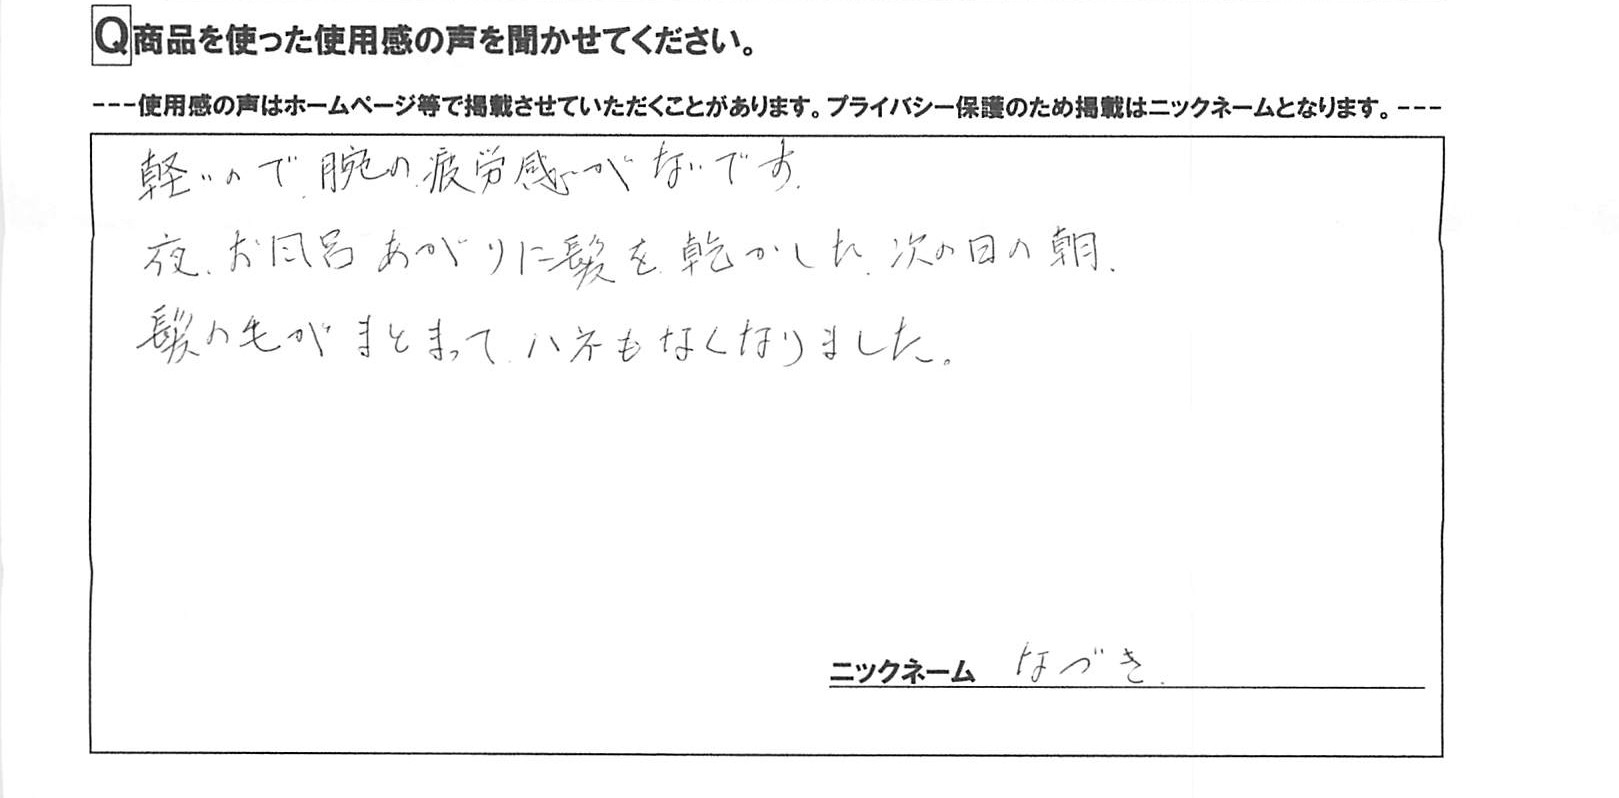 Q商品を使った使用感の声を聞かせてください。
---使用感の声はホームページ等で掲載させていただくことがあります。プライバシー保護のため掲載はニックネームとなります。---
軽いので、腕の疲労感がないです。
夜、お風呂あがりに髪を乾かした、次の日の朝、
髪の毛がまとまって、ハネもなくなりました。
ニックネーム なづき